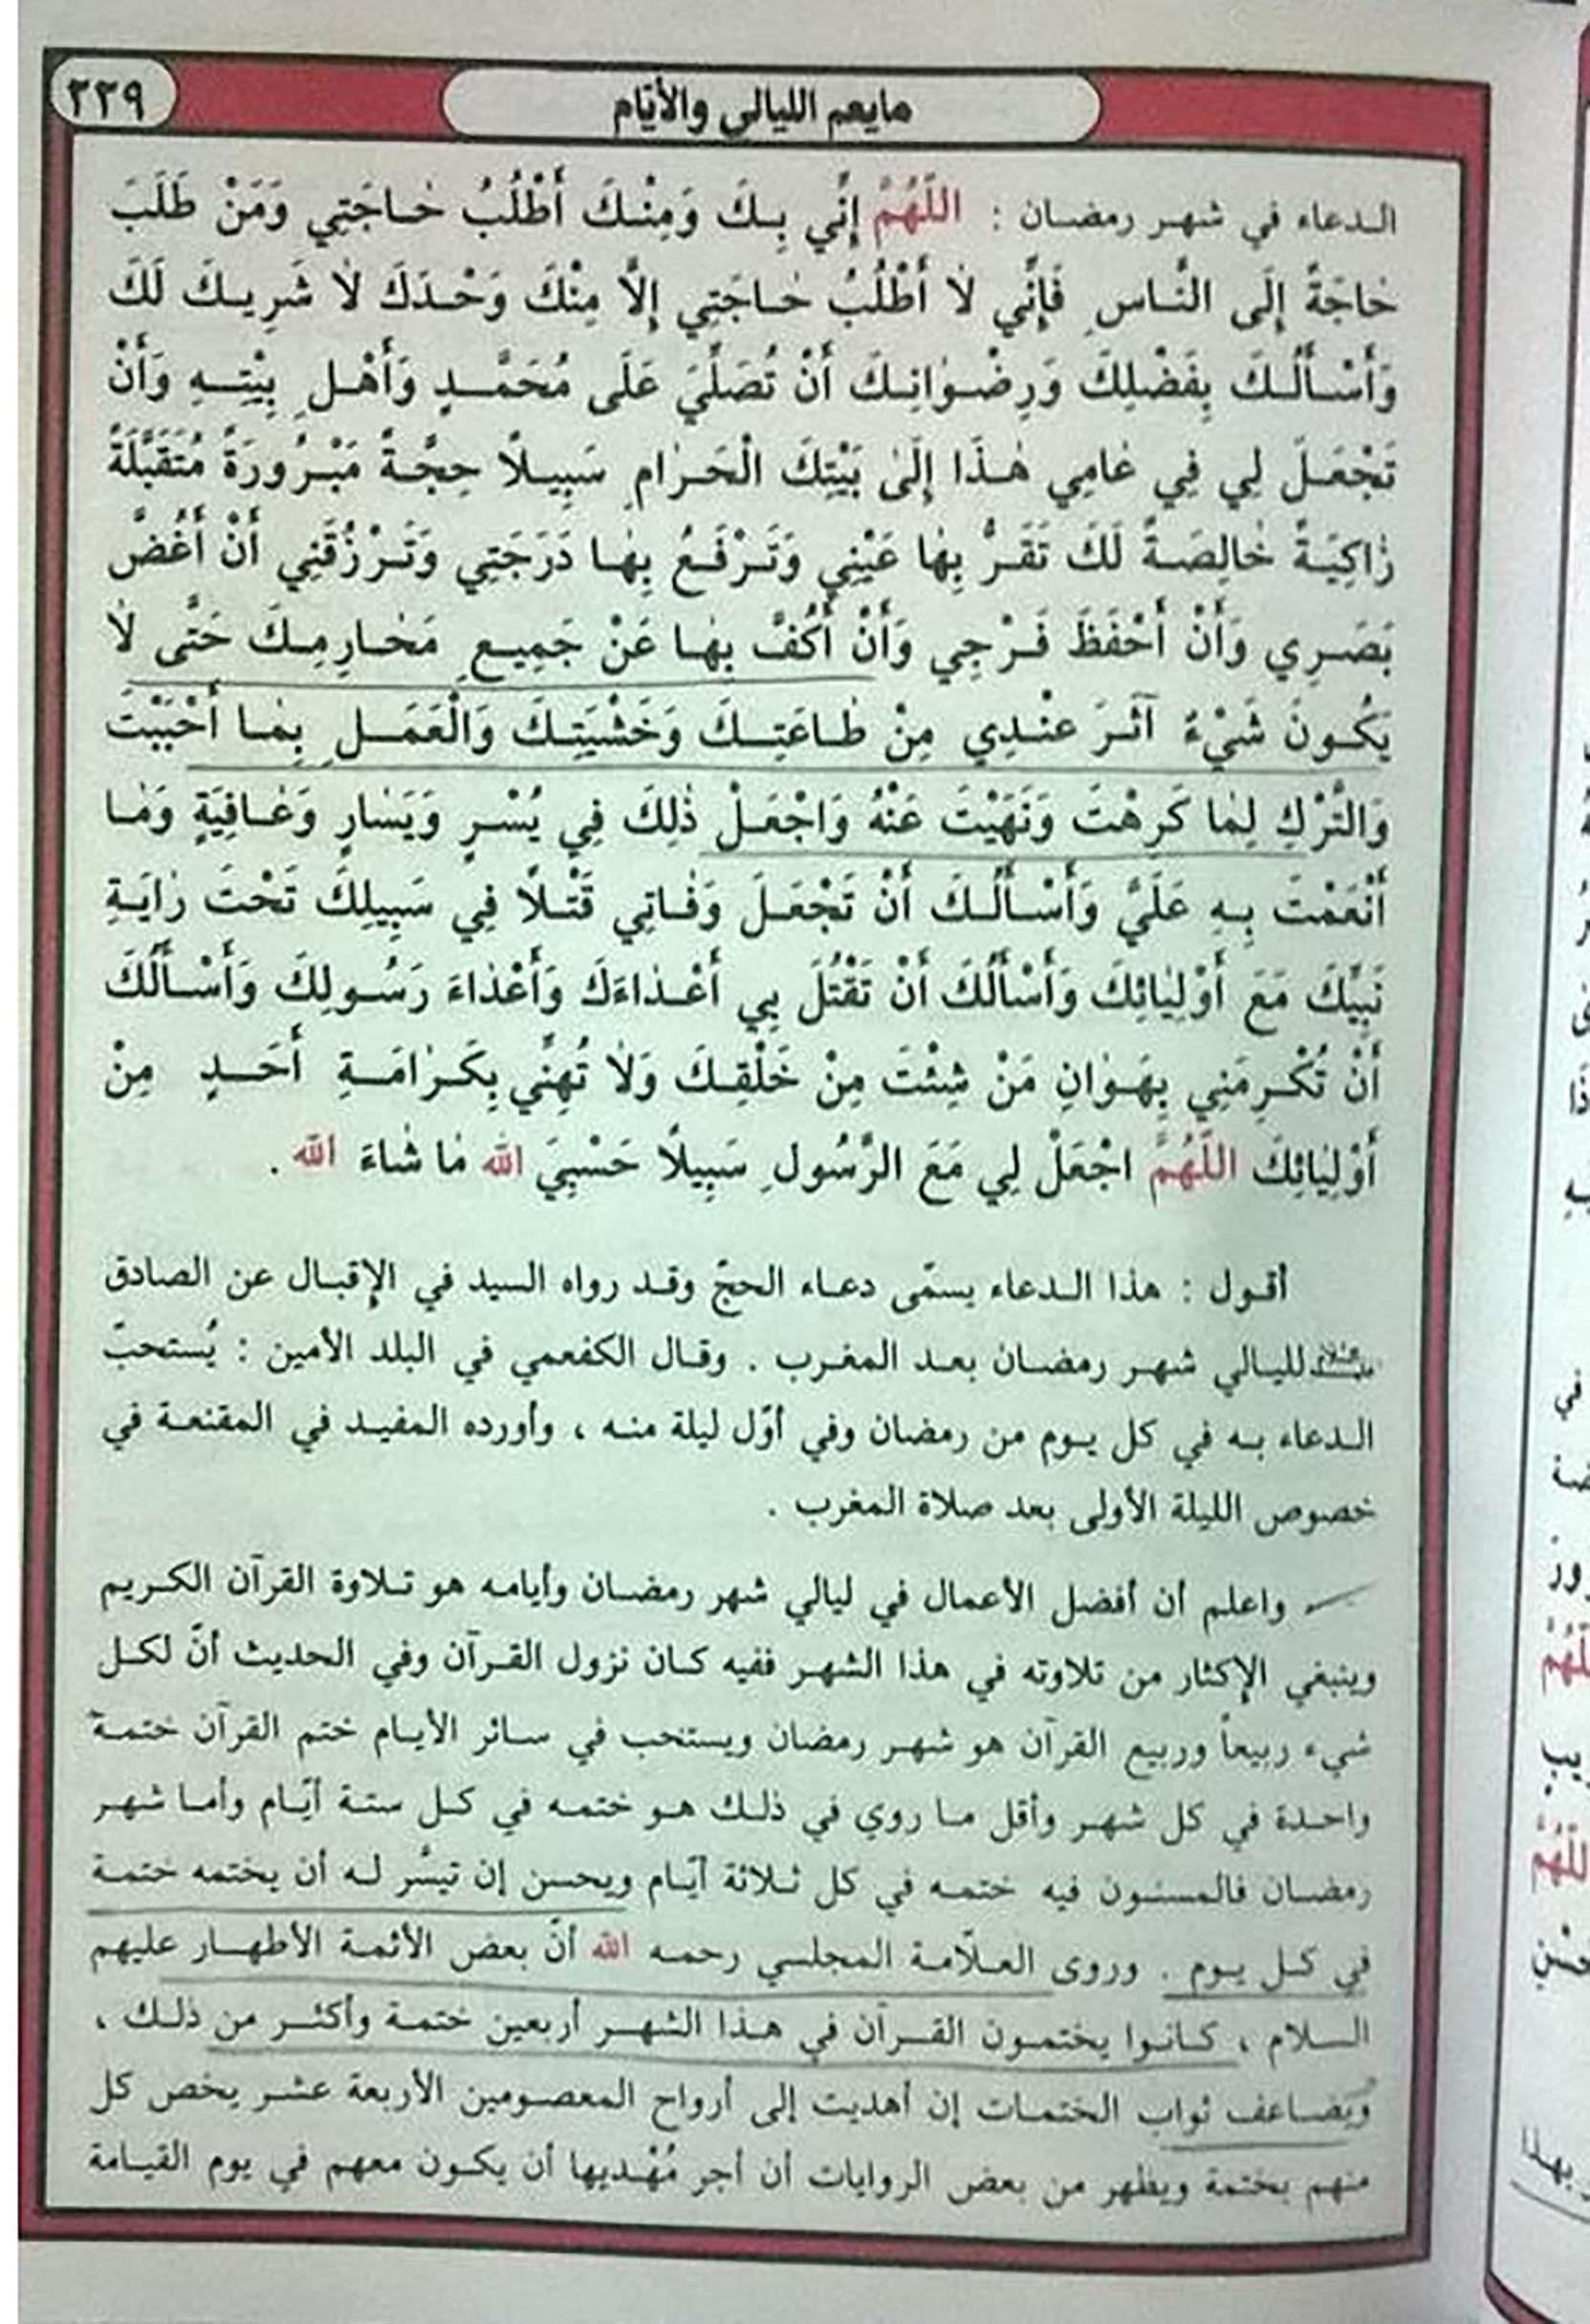 مايعم الليالي والأيّام
٢٣٩
الـدعاء في شهـر رمضـان : اللَّهُمَّ إِنِّي بِـكَ وَمِنْـكَ أَطْلُبُ حٰـاجَتِي وَمَنْ طَلَبَ
حٰاجَةً إِلَى النَّـاسِ فَإِنِّي لٰا أَطْلُبُ حٰـاجَتِي إِلَّا مِنْكَ وَحْـدَكَ لٰا شَرِيـكَ لَكَ
وَأَسْـأَلُـكَ بِفَضْلِكَ وَرِضْـوٰانِـكَ أَنْ تُصَلِّيَ عَلَى مُحَمَّـدٍ وَأَهْـلِ بِيْتِـهِ وَأَنْ
تَجْعَـلَ لِي فِي عٰامِي هٰـذَا إِلَىٰ بَيْتِكَ الْحَـرٰامِ سَبِيـلًا حِجَّـةً مَبْـرُورَةً مُتَقَبَّلَةً
زٰاكِيَـةً خٰالِصَـةً لَكَ تَقَـرُّ بِهٰا عَيْنِي وَتَـرْفَـعُ بِهٰـا دَرَجَتِي وَتَـرْزُقَنِي أَنْ أَغُضَّ
بَصَـرِي وَأَنْ أَحْفَظَ فَـرْجِي وَأَنْ أَكُفَّ بِهٰـا عَنْ جَمِيـعِ مَحٰـارِمِـكَ حَتَّى لٰا
يَكُـونَ شَيْءٌ آثَـرَ عنْـدِي مِنْ طٰـاعَتِـكَ وَخَشْيَتِـكَ وَالْعَمَـلِ بِمٰـا أَحْبَبْتَ
وَالتَّرْكِ لِمٰا كَرِهْتَ وَنَهَيْتَ عَنْهُ وَاجْعَـلْ ذٰلِكَ فِي يُسْـرٍ وَيَسٰارٍ وَعٰـافِيَةٍ وَمٰـا
أَنْعَمْتَ بِـهِ عَلَيَّ وَأَسْـأَلُـكَ أَنْ تَجْعَـلَ وَفٰـاتِي قَتْـلًا فِي سَبِيلِكَ تَحْتَ رٰايَـةِ
نَبِيِّكَ مَعَ أَوْلِيٰائِكَ وَأَسْأَلُكَ أَنْ تَقْتُلَ بِي أَعْـدٰاءَكَ وَأَعْدٰاءَ رَسُـولِكَ وَأَسْـأَلُكَ
أَنْ تُكْـرِمَنِي بِهَـوٰانِ مَنْ شِئْتَ مِنْ خَلْقِـكَ وَلٰا تُهِنِّي بِكَـرٰامَـةِ أَحَـدٍ مِنْ
أَوْلِيٰائِكَ اللَّهُمَّ اجْعَلْ لِي مَعَ الرَّسُولِ سَبِيلًا حَسْبِيَ الله مٰا شٰاءَ الله .
أقـول : هذا الـدعاء يسمّى دعـاء الحجّ وقـد رواه السيد في الإقبـال عن الصادق
لليـالي شهـر رمضـان بعـد المغـرب . وقـال الكفعمي في البلد الأمين : يُستحبّ
الـدعـاء بـه في كل يـوم من رمضان وفي أوّل ليلة منـه ، وأورده المفيـد في المقنعـة في
خصوص الليلة الأولى بعد صلاة المغرب .
واعلم أن أفضل الأعمال في ليالي شهر رمضـان وأيامـه هو تـلاوة القرآن الكـريم
وينبغي الإكثار من تلاوته في هذا الشهـر ففيه كـان نزول القـرآن وفي الحديث أنّ لكـل
شيء ربيعاً وربيع القرآن هو شهـر رمضان ويستحب في سـائر الأيـام ختم القرآن ختمـة
واحـدة في كل شهـر وأقل مـا روي في ذلـك هـو ختمـه في كـل ستـة أيّـام وأمـا شهـر
رمضـان فالمسنـون فيه ختمـه في كل ثـلاثة أيّـام ويحسن إن تيسَّر لـه أن يختمه ختمـة
في كـل يـوم . وروى العـلّامـة المجلسي رحمـه الله أنّ بعض الأئمـة الأطهـار عليهم
السـلام ، كـانـوا يختمـون القـرآن في هـذا الشهـر أربعين ختمـة وأكثـر من ذلـك ،
ويُضـاعف ثواب الختمـات إن أهديت إلى أرواح المعصـومين الأربعة عشـر يخص كل
منهم بختمة ويظهر من بعض الروايات أن أجر مُهْديها أن يكـون معهم في يوم القيـامة